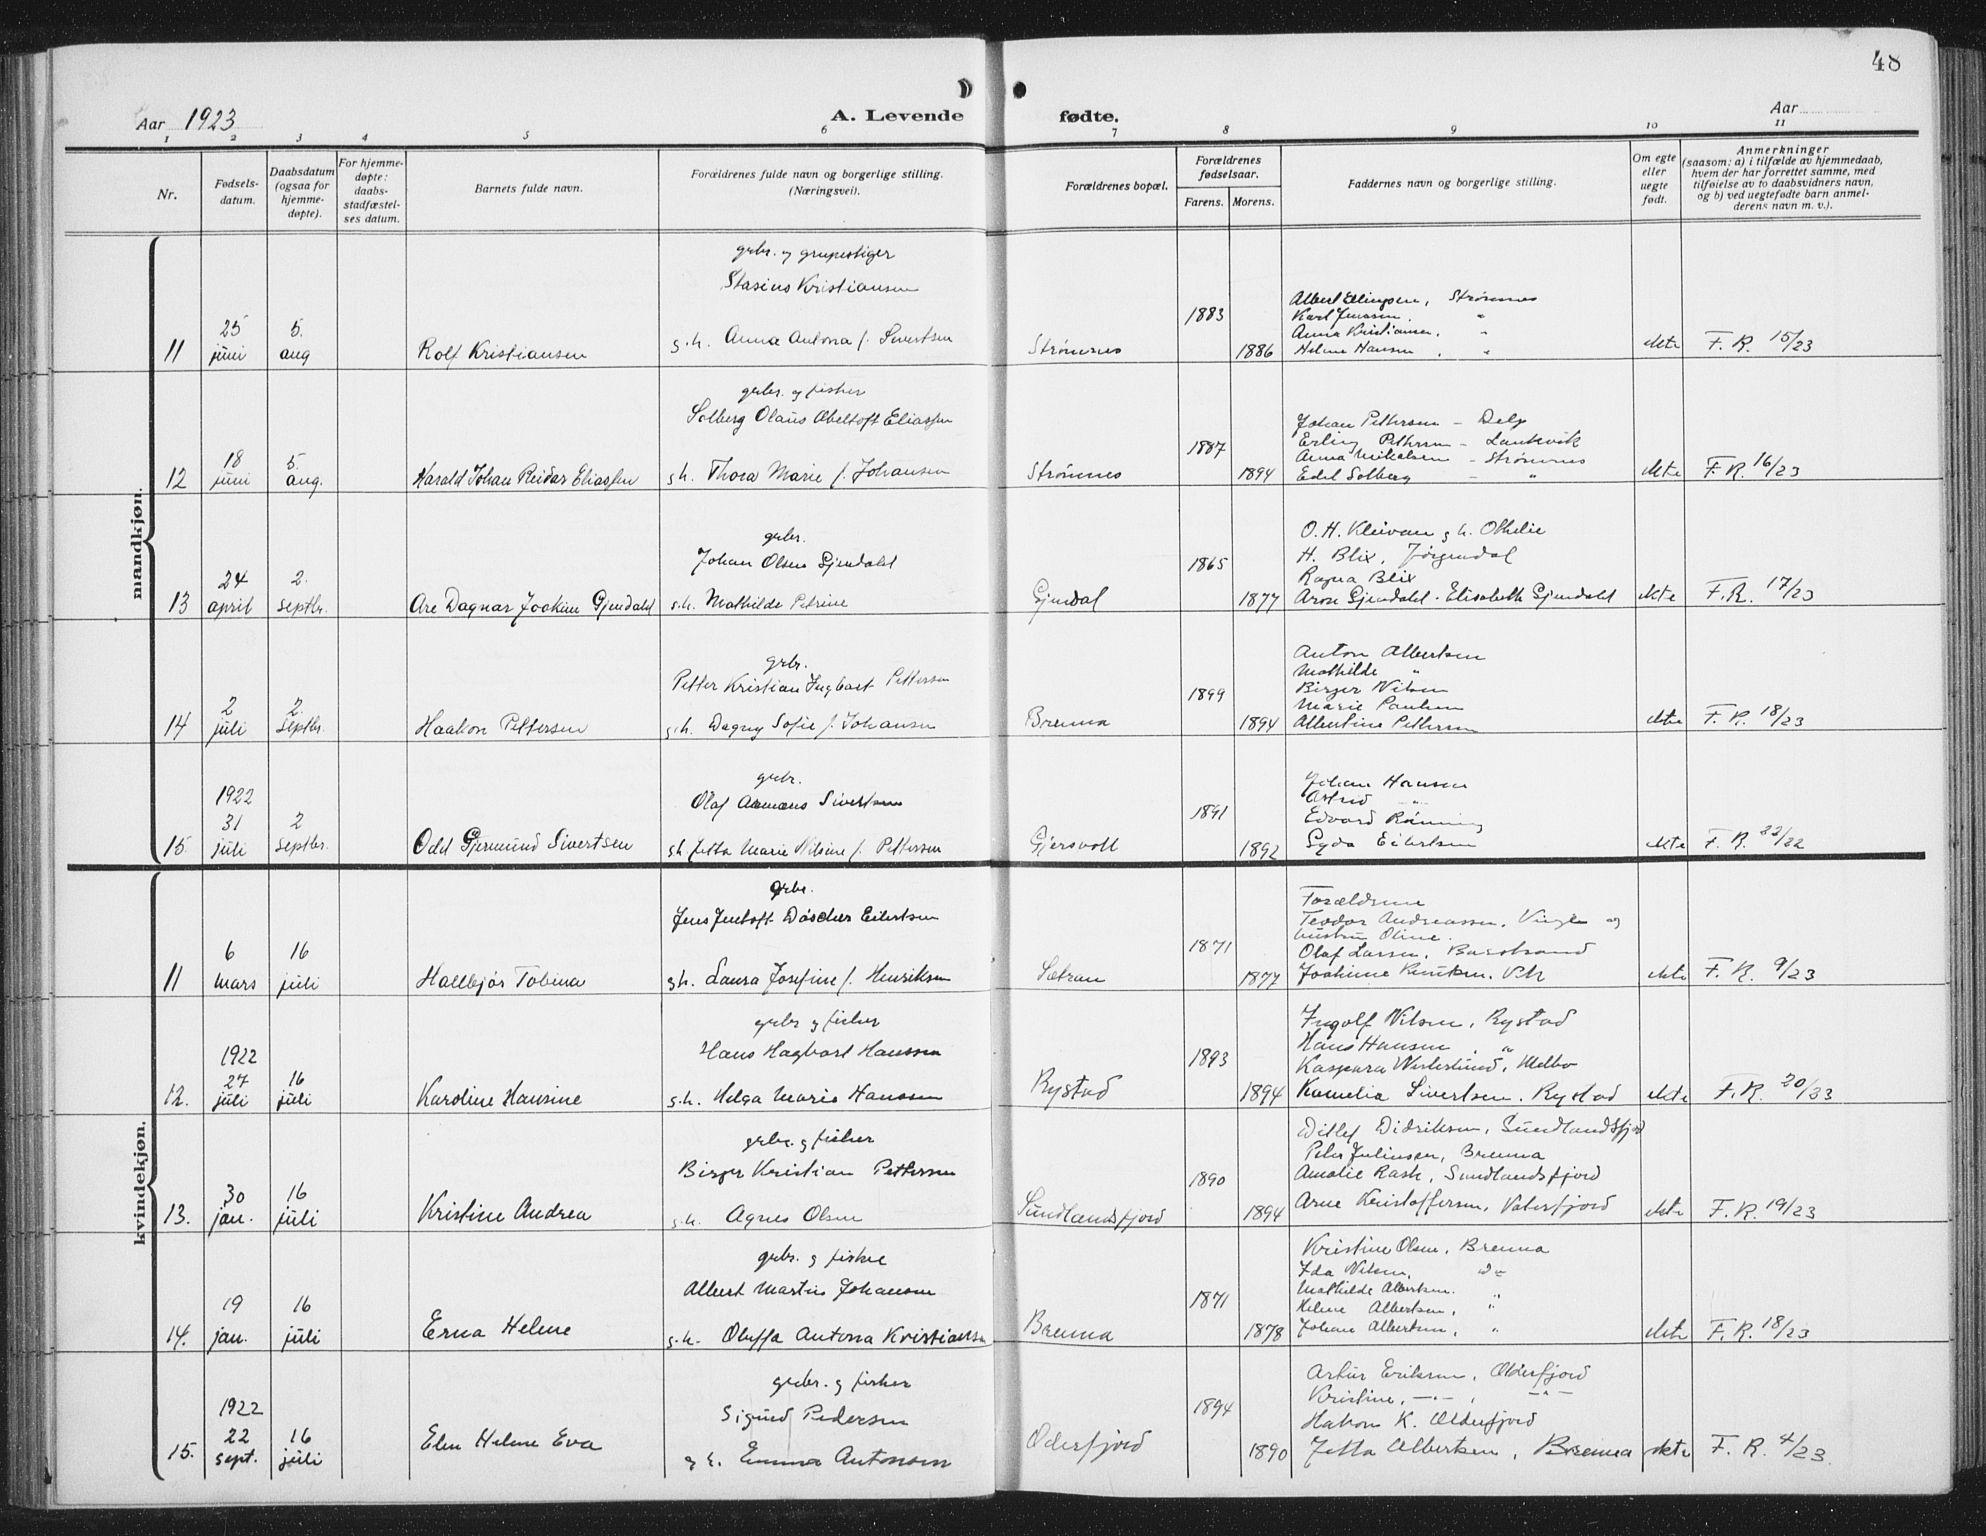 48
Aar 1923
A. Levende
fødte.
Aar
1 2 3 4 5 6 7 8 9 10 11
Nr.
Fødsels-
datum.
Daabsdatum
(ogsaa for
hjemme-
døpte).
For hjemme-
døpte:
daabs-
stadfæstel-
ses datum.
Barnets fulde navn.
Forældrenes fulde navn og borgerlige stilling.
(Næringsvei).
Forældrenes bopæl.
Forældrenes
fødselsaar.
Farens. Morens.
Faddernes navn og borgerlige stilling.
Om egte
eller
uegte
født.
Anmerkninger
(saasom: a) i tilfælde av hjemmedaab,
hvem der har forrettet samme, med
tilføielse av to daabsvidners navn,
og b) ved uegtefødte barn anmel-
derens navn m. v.).
mandkjøn.
11
25
juni
5.
aug
Rolf Kristiansen
grbr. og grupestiger
Stasius Kristiansen
g.h. Anna Antona f. Sivertsen
Strømnes
1883
1886
Albert Ellingsen, Strømnes
Karl Jenssen. "
Anna Kristiansen, "
Helene Hansen, "
ekte
F. R. 15/23
12
18
juni
5.
aug.
Harald Johan Reidar Eliassen
grbr. og fisker
Solberg Olaus Abeltoft Eliassen
g.h. Thora Marie f. Johansen
Strømnes
1887
1894
Johan Pettersen - Delp
Erling Pettersen - Lankvik
Anna Mikalsen - Strømnes
Edel Solberg - "
ekte
F. R. 16/23
13
24
april
2.
septbr.
Are Dagnar Joakim Gjendald
grbr.
Johan Olsen Gjendald
g.h. Mathilde Petrine
Gjendal
1865
1877
O. H. Kleivan g h. Othelie
H. Blix, Jørgendal
Ragna Blix
Aron Gjendald - Elisabeth Gjendald
ekte
F. R. 17/23
14
2
juli
2.
septbr.
Haakon Pettersen
grbr.
Petter Kristian Ingbart Pettersen
g.h. Dagny Sofie f. Johansen
Brenna
1899
1894
Anton Albertsen
Mathilde "
Birger Nilsen
Marie Paulsen
Albertine Pettersen
ekte
F. R. 18/23
15.
1922
31
juli
2
septbr.
Odd Gjermund Sivertsen
grbr.
Olaf Sivertsen
gh Jetta Marie Nilsine f. Pettersen
Gjersvoll
1891
1892
Johan Hansen
Astrid "
Edvard Rønning
Syda Eilertsen
ekte
F. R. 22/22
kvindekjøn.
11
6
mars
16
juli
Hallbjør Tobina
grbr.
Jens Jentoft Döscher Eilertsen
g.h. Laura Josefine f. Henriksen
Sætran
1871
1877
Forældrene
Teodor Andreassen, Vingle og
hustru Oline.
Olaf Larsen, Barstrand
Joakime Knutsen, Vik
ekte
F. R. 9/23
12.
1922
27
juli
16
juli
Karoline Hansine
grbr og fisker
Hans Hagbart Hanssen
g.h. Helga Marie Hanssen
Rystad
1893
1894
Ingolf Nilsen, Rystad
Hans Hansen, "
Kaspara Westerlund, Melbo
Kamelia Sivertsen. Rystad
ekte
F. R. 20/23
13.
30
jan.
16
juli
Kristine Andrea
grbr. og fisker
Birger Kristian Pettersen
g.h. Agnes Olsen
Sundlandsfjord
1890
1894
Ditlef Didriksen, Sundlandsfjord
Peter Juliussen, Brenna
Amalie Rask, Sundlandsfjord
Arne Kristoffersen, Vatersfjord
ekte
F. R. 19/23
14.
19
jan.
16
juli
Erna Helene
grbr. og fisker
Albert Martin Johansen
g.h. Oluffa Antona Kristiansen
Brenna
1871
1878
Kristine Olsen, Brenna
Ida Nilsen, do
Mathilde Albertsen. "
Helene Albertsen, "
Johan Albertsen, "
ekte
F. R. 18/23
15.
1922
22
sept.
16
juli
Elen Helene Eva
grbr. og fisker
Sigurd Pedersen
g h. Emma Antonsen
Oderfjord
1894
1890
Artur Eriksen, Olderfjord
Kristine, -"- , -"-
Hakon K. Olderfjord
Jetta Albertsen, Brenna
ekte
F. R. 4/23.